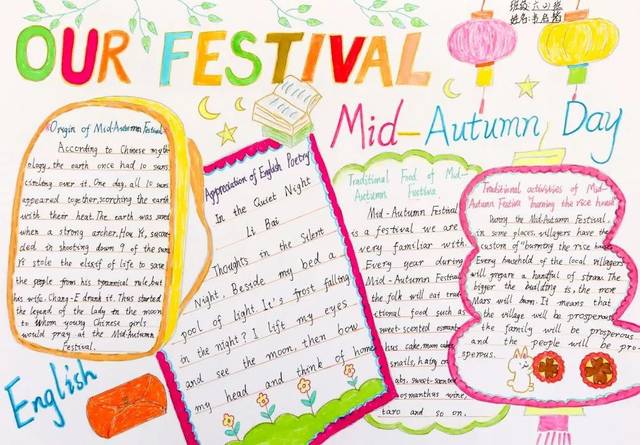 OUR FESTIVAL
班级:六(2)班
姓名:
Mid-Autumn Day
Origin of Mid-Autumn Festival
According to Chinese myth-
ology, the earth once had 10 suns
circling over it. One day, all 10 suns
appeared together, scorching the earth
with their heat. The earth was saved
when a strong archer, Hou Yi, succee-
ded in shooting down 9 of the suns
Yi stole the elixif of life to save
the people from his tyrannical rule, but
his wife, Chang-E drank it. Thus started
the legend of the lady in the moon
to whom young Chinese girls
would pray at the Mid-Autumn
Festival.
English
Appreciation of English Poetry
In the Quiet Night
Li Bai
Thoughts in the Silent
Night. Beside my bed a
pool of light. It's frost falling
in the night? I lift my eyes
and see the moon, then bow
my head and think of home
Traditional Food of Mid-
Autumn Festiva
Mid-Autumn Festival
is a festival we are
very familiar with
Every year during
Mid-Autumn Festival
the folk will eat tra
tional food such as
sweet-scented osmant
hus cake,
snails, hairy
abs, sweet-scented
osmanthus wine,
taro and so on.
Traditional activities of Mid-
Autumn Festiva "burning the rice house
During the Mid-Autumn Festival,
in some places, villagers have the
custom of "burning the rice house
Every household of the local villagers
will prepare a handful of straw. The
bigger the building is, the more
Mars will burn. It means that
the village will be prosperous
the family will be prosperous
and the people will be pro
sperous.